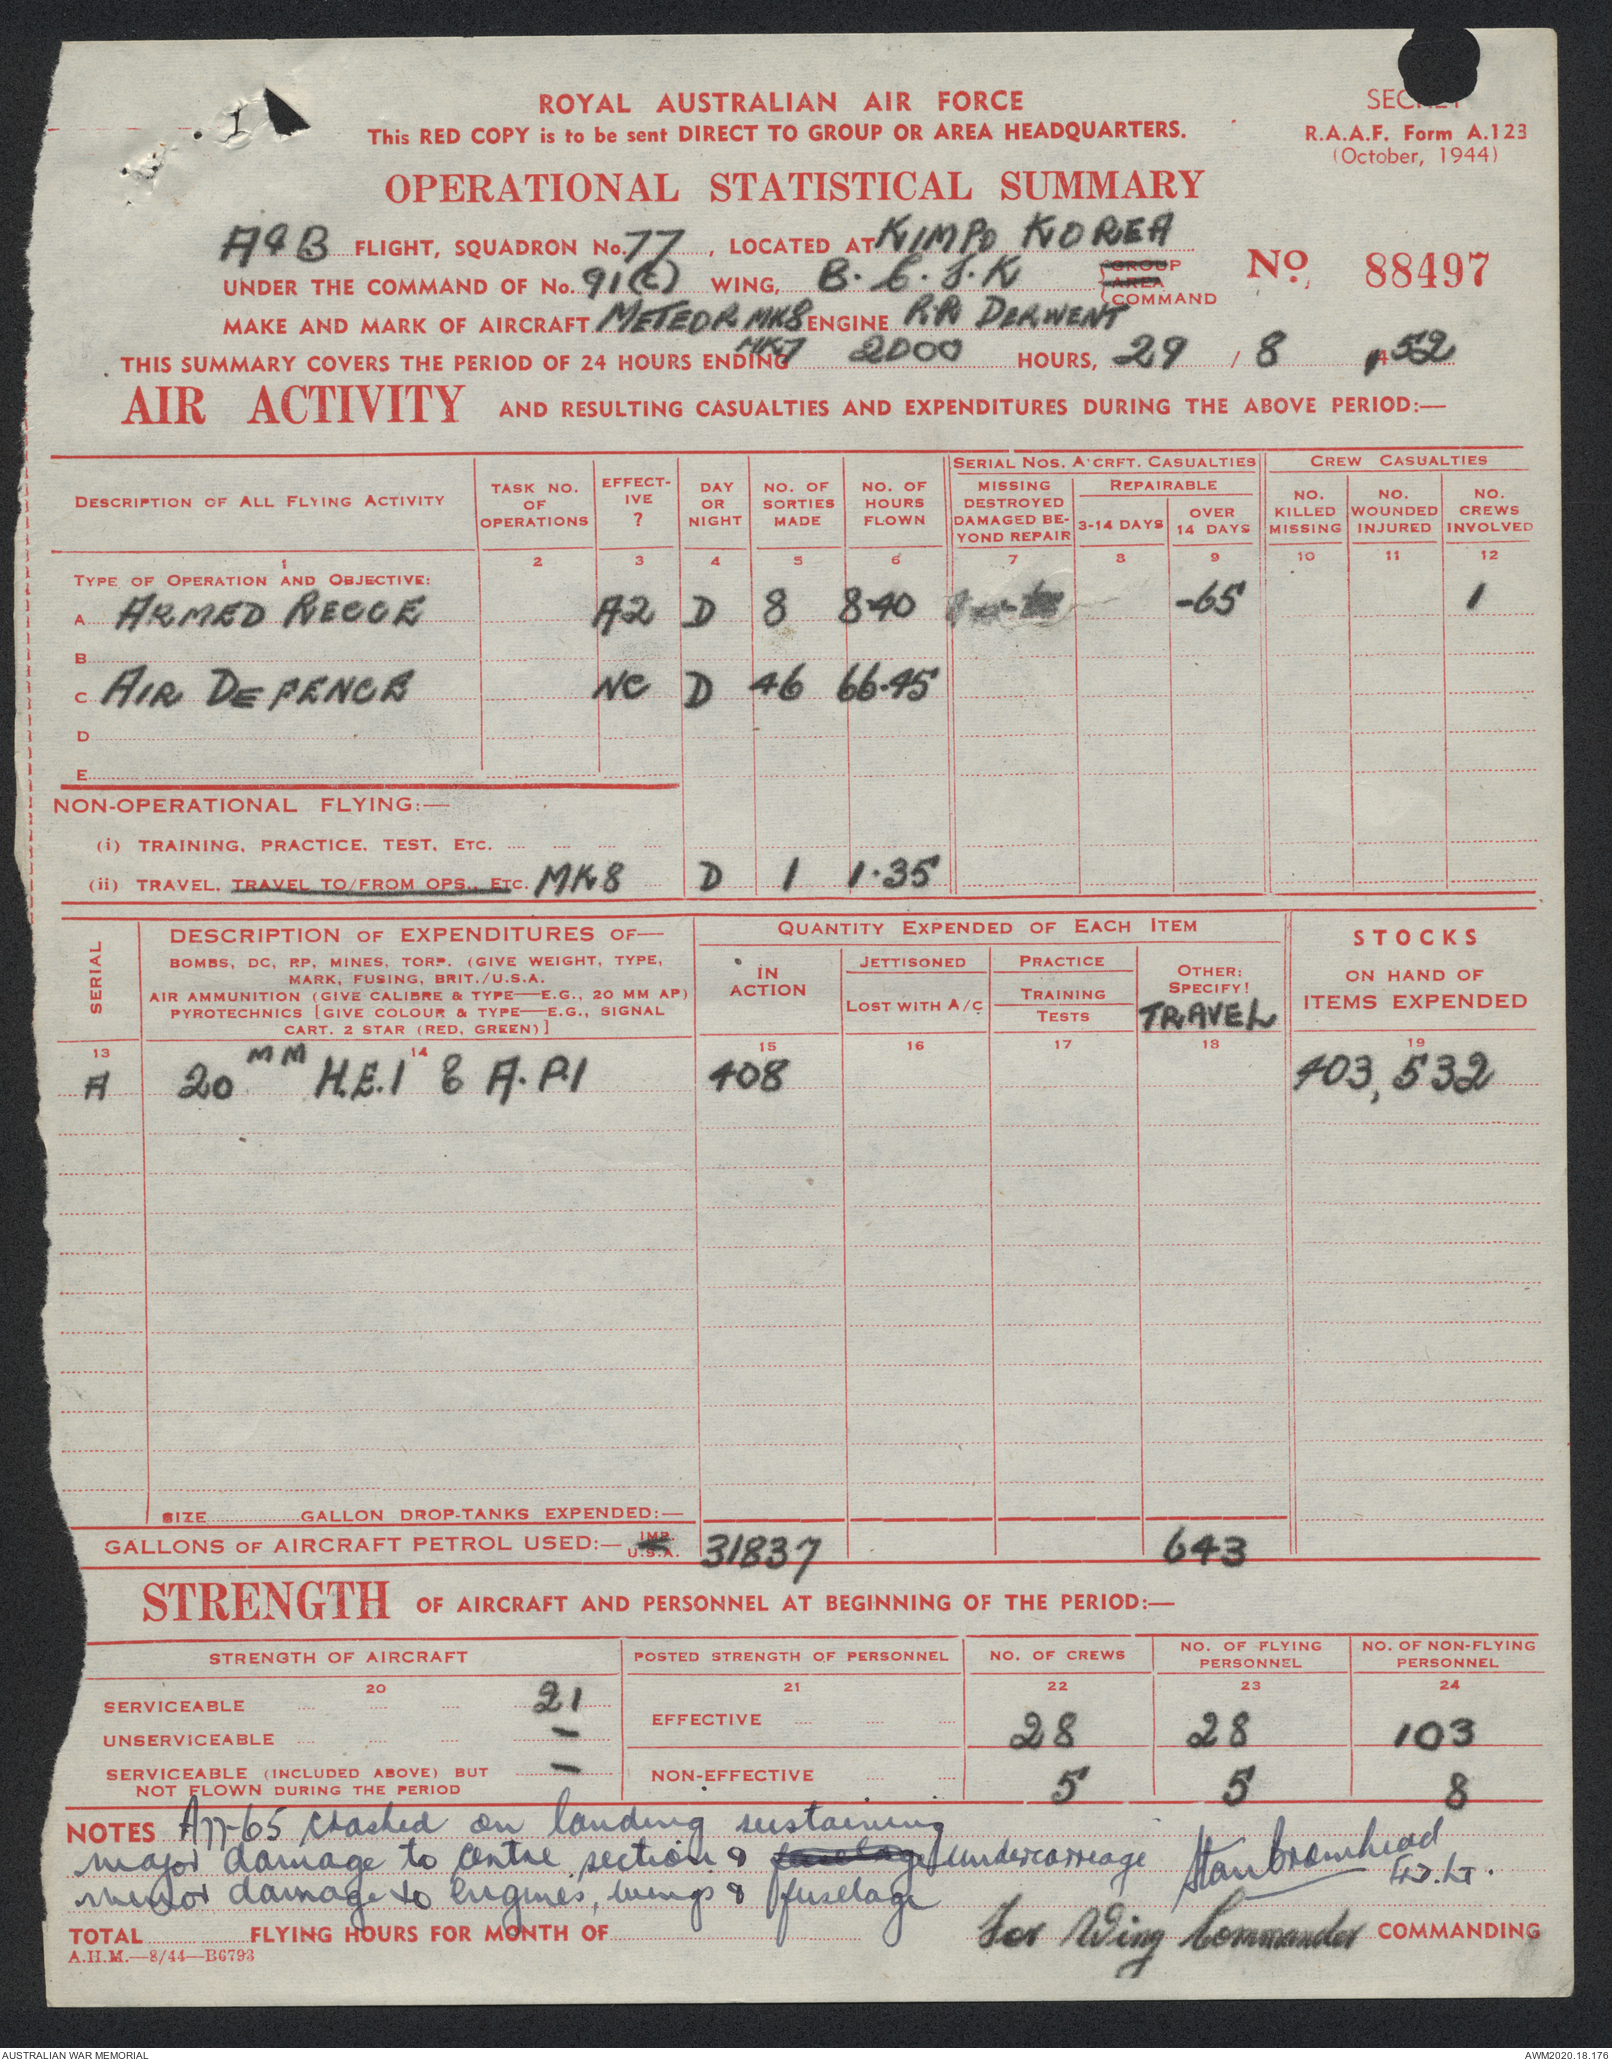 1
ROYAL AUSTRALIAN AIR FORCE
This RED COPY is to be sent DIRECT TO GROUP OR AREA HEADQUARTERS.
SECRET
R.A.A.F. Form A.123
(October, 1944)
OPERATIONAL STATISTICAL SUMMARY
A & B FLIGHT, SQUADRON No. 77, LOCATED AT KIMPO KOREA
UNDER THE COMMAND OF No. 91(C) WING, B.C.F.K GROUP AREA COMMAND
No. 88497
MAKE AND MARK OF AIRCRAFT METEOR MK8 ENGINE RR DERWENT
MK7
THIS SUMMARY COVERS THE PERIOD OF 24 HOURS ENDING 2000 HOURS, 29 / 8 52
AIR ACTIVITY AND RESULTING CASUALTIES AND EXPENDITURES DURING THE ABOVE PERIOD:—
DESCRIPTION OF ALL FLYING ACTIVITY
TASK NO. OF OPERATIONS
EFFECT-IVE ?
DAY OR NIGHT
NO. OF SORTIES MADE
NO. OF HOURS FLOWN
SERIAL NOS. A'CRFT. CASUALTIES
MISSING DESTROYED DAMAGED BE-YOND REPAIR
REPAIRABLE
3-14 DAYS
OVER 14 DAYS
CREW CASUALTIES
NO. KILLED MISSING
NO. WOUNDED INJURED
NO. CREWS INVOLVED
1 2 3 4 5 6 7 8 9 10 11 12
TYPE OF OPERATION AND OBJECTIVE:
A ARMED RECCE A2 D 8 8·40 -65 1
B
C AIR DEFENCE NC D 46 66·45
D
E
NON-OPERATIONAL FLYING:—
(i) TRAINING, PRACTICE, TEST, ETC.
(ii) TRAVEL, TRAVEL TO/FROM OPS., ETC. MK8 D 1 1·35
SERIAL
DESCRIPTION OF EXPENDITURES OF—
BOMBS, DC, RP, MINES, TORP. (GIVE WEIGHT, TYPE,
MARK, FUSING, BRIT./U.S.A.
AIR AMMUNITION (GIVE CALIBRE & TYPE—E.G., 20 MM AP)
PYROTECHNICS [GIVE COLOUR & TYPE—E.G., SIGNAL
CART. 2 STAR (RED, GREEN)]
QUANTITY EXPENDED OF EACH ITEM
IN ACTION
JETTISONED
LOST WITH A/C
PRACTICE
TRAINING
TESTS
OTHER: SPECIFY!
TRAVEL
STOCKS
ON HAND OF
ITEMS EXPENDED
13 14 15 16 17 18 19
A 20 MM H.E.I & A.P.I 408 403,532
SIZE GALLON DROP-TANKS EXPENDED:—
GALLONS OF AIRCRAFT PETROL USED:— IMP. U.S.A. 31837 643
STRENGTH OF AIRCRAFT AND PERSONNEL AT BEGINNING OF THE PERIOD:—
STRENGTH OF AIRCRAFT
POSTED STRENGTH OF PERSONNEL
NO. OF CREWS
NO. OF FLYING PERSONNEL
NO. OF NON-FLYING PERSONNEL
20 21 22 23 24
SERVICEABLE 21
UNSERVICEABLE –
SERVICEABLE (INCLUDED ABOVE) BUT NOT FLOWN DURING THE PERIOD –
EFFECTIVE 28 28 103
NON-EFFECTIVE 5 5 8
NOTES A77-65 crashed on landing sustaining
major damage to centre section & fuselage undercarriage
minor damage to engines, wings & fuselage
Stan Bromhead
Flt. Lt.
TOTAL FLYING HOURS FOR MONTH OF
For Wing Commander COMMANDING
A.H.M.—8/44—B6793
AUSTRALIAN WAR MEMORIAL
AWM2020.18.176